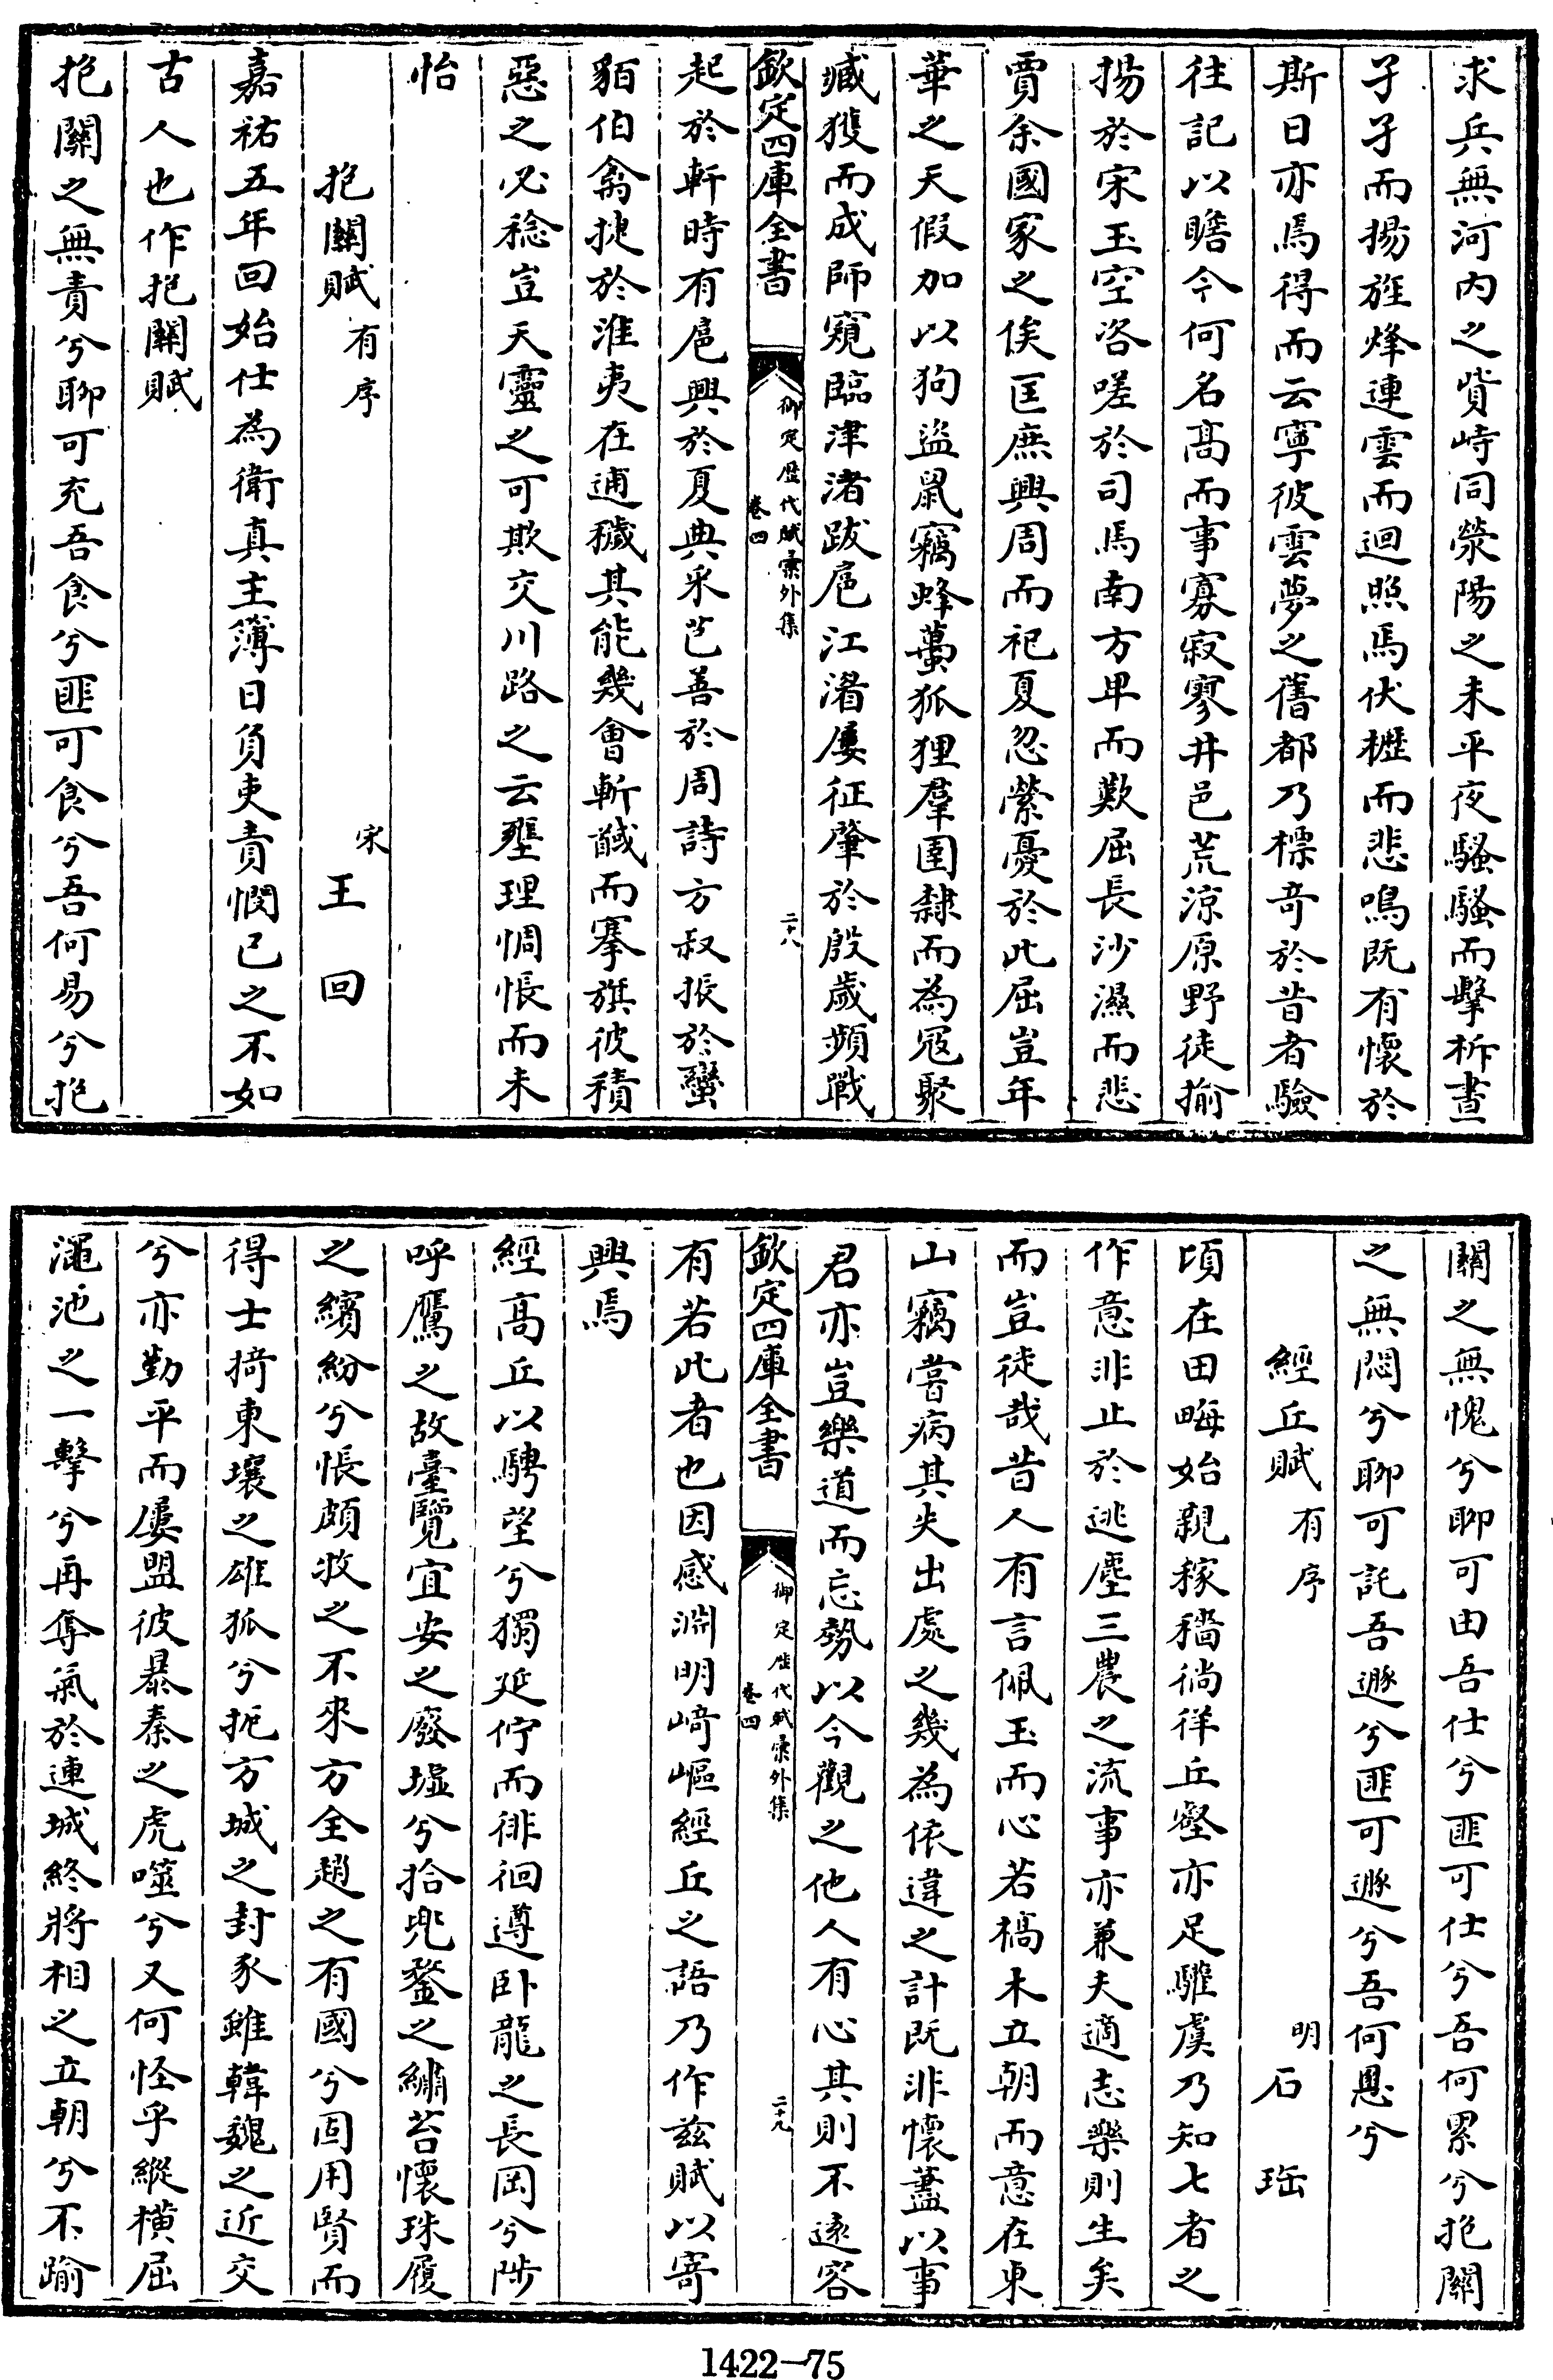 求兵無河内之貲峙同滎陽之未平夜騷騷而擊柝晝
孑孑而揚旌烽連雲而迴照馬伏櫪而悲鳴既有懷於
斯日亦焉得而云寧彼雲夢之舊都乃標奇於昔者驗
往記以瞻今何名高而事寡寂寥井邑荒涼原野徒揄
揚於宋玉空咨嗟於司馬南方卑而歎屈長沙濕而悲
賈余國家之俟匡庶興周而祀夏忽縈憂於此屈豈年
華之天假加以狗盜鼠竊蜂蠆狐狸羣圉隸而為寇聚
臧獲而成師窺臨津渚跋扈江湄屢征肇於殷歲頻戰
欽定四庫全書
御定歷代賦彙外集
卷四
二十八
起於軒時有扈興於夏典采芑著於周詩方叔振於蠻
貊伯禽捷於淮夷在逋穢其能幾會斬馘而搴旗彼積
惡之必稔豈天靈之可欺交川路之云壅理惆悵而未
怡
抱關賦有序
宋王回
嘉祐五年回始仕為衛真主簿日負吏責憫已之不如
古人也作抱關賦
抱關之無責兮聊可充吾食兮匪可食兮吾何易兮抱
關之無愧兮聊可由吾仕兮匪可仕兮吾何累兮抱關
之無悶兮聊可託吾遯兮匪可遯兮吾何慁兮
經丘賦有序
明石珤
頃在田畮始親稼穡徜徉丘壑亦足騅虞乃知七者之
作意非止於逃塵三農之流事亦兼夫適志樂則生矣
而豈徒哉昔人有言佩玉而心若槁木立朝而意在東
山竊嘗病其失出處之幾為依違之計既非懷藎以事
君亦豈樂道而忘勢以今觀之他人有心其則不遠容
欽定四庫全書
御定歷代賦彙外集
卷四
二十九
有若此者也因感淵明﨑嶇經丘之語乃作兹賦以寄
興焉
經高丘以騁望兮獨延佇而徘徊遵卧龍之長岡兮陟
呼鷹之故臺覽宜安之廢墟兮拾兜鍪之繡苔懷珠履
之繽紛兮悵頗牧之不來方全趙之有國兮固用賢而
得士掎東壤之雄狐兮扼方城之封豕雖韓魏之近交
兮亦勤平而屢盟彼暴秦之虎噬兮又何怪乎縱橫屈
澠池之一擊兮再奪氣於連城終將相之立朝兮不踰
1422—75